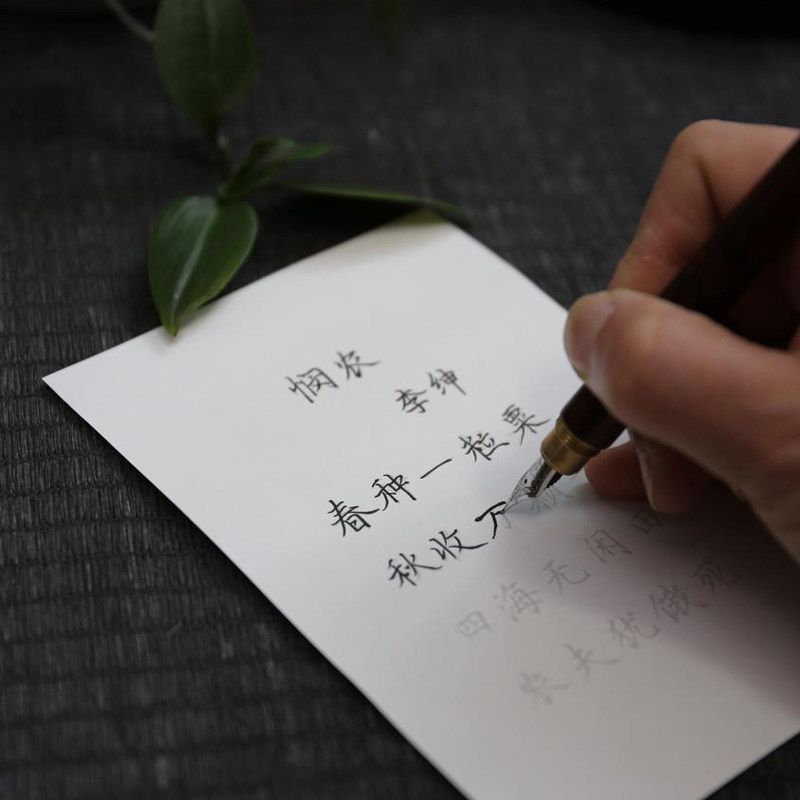 悯农
李绅
春种一粒粟
秋收万
四海无闲田
农夫犹饿死